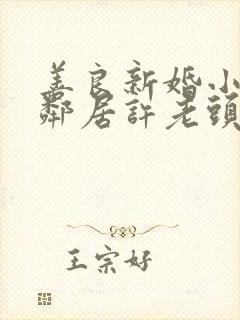 善良新婚小
鄰居許老頭
王宗好